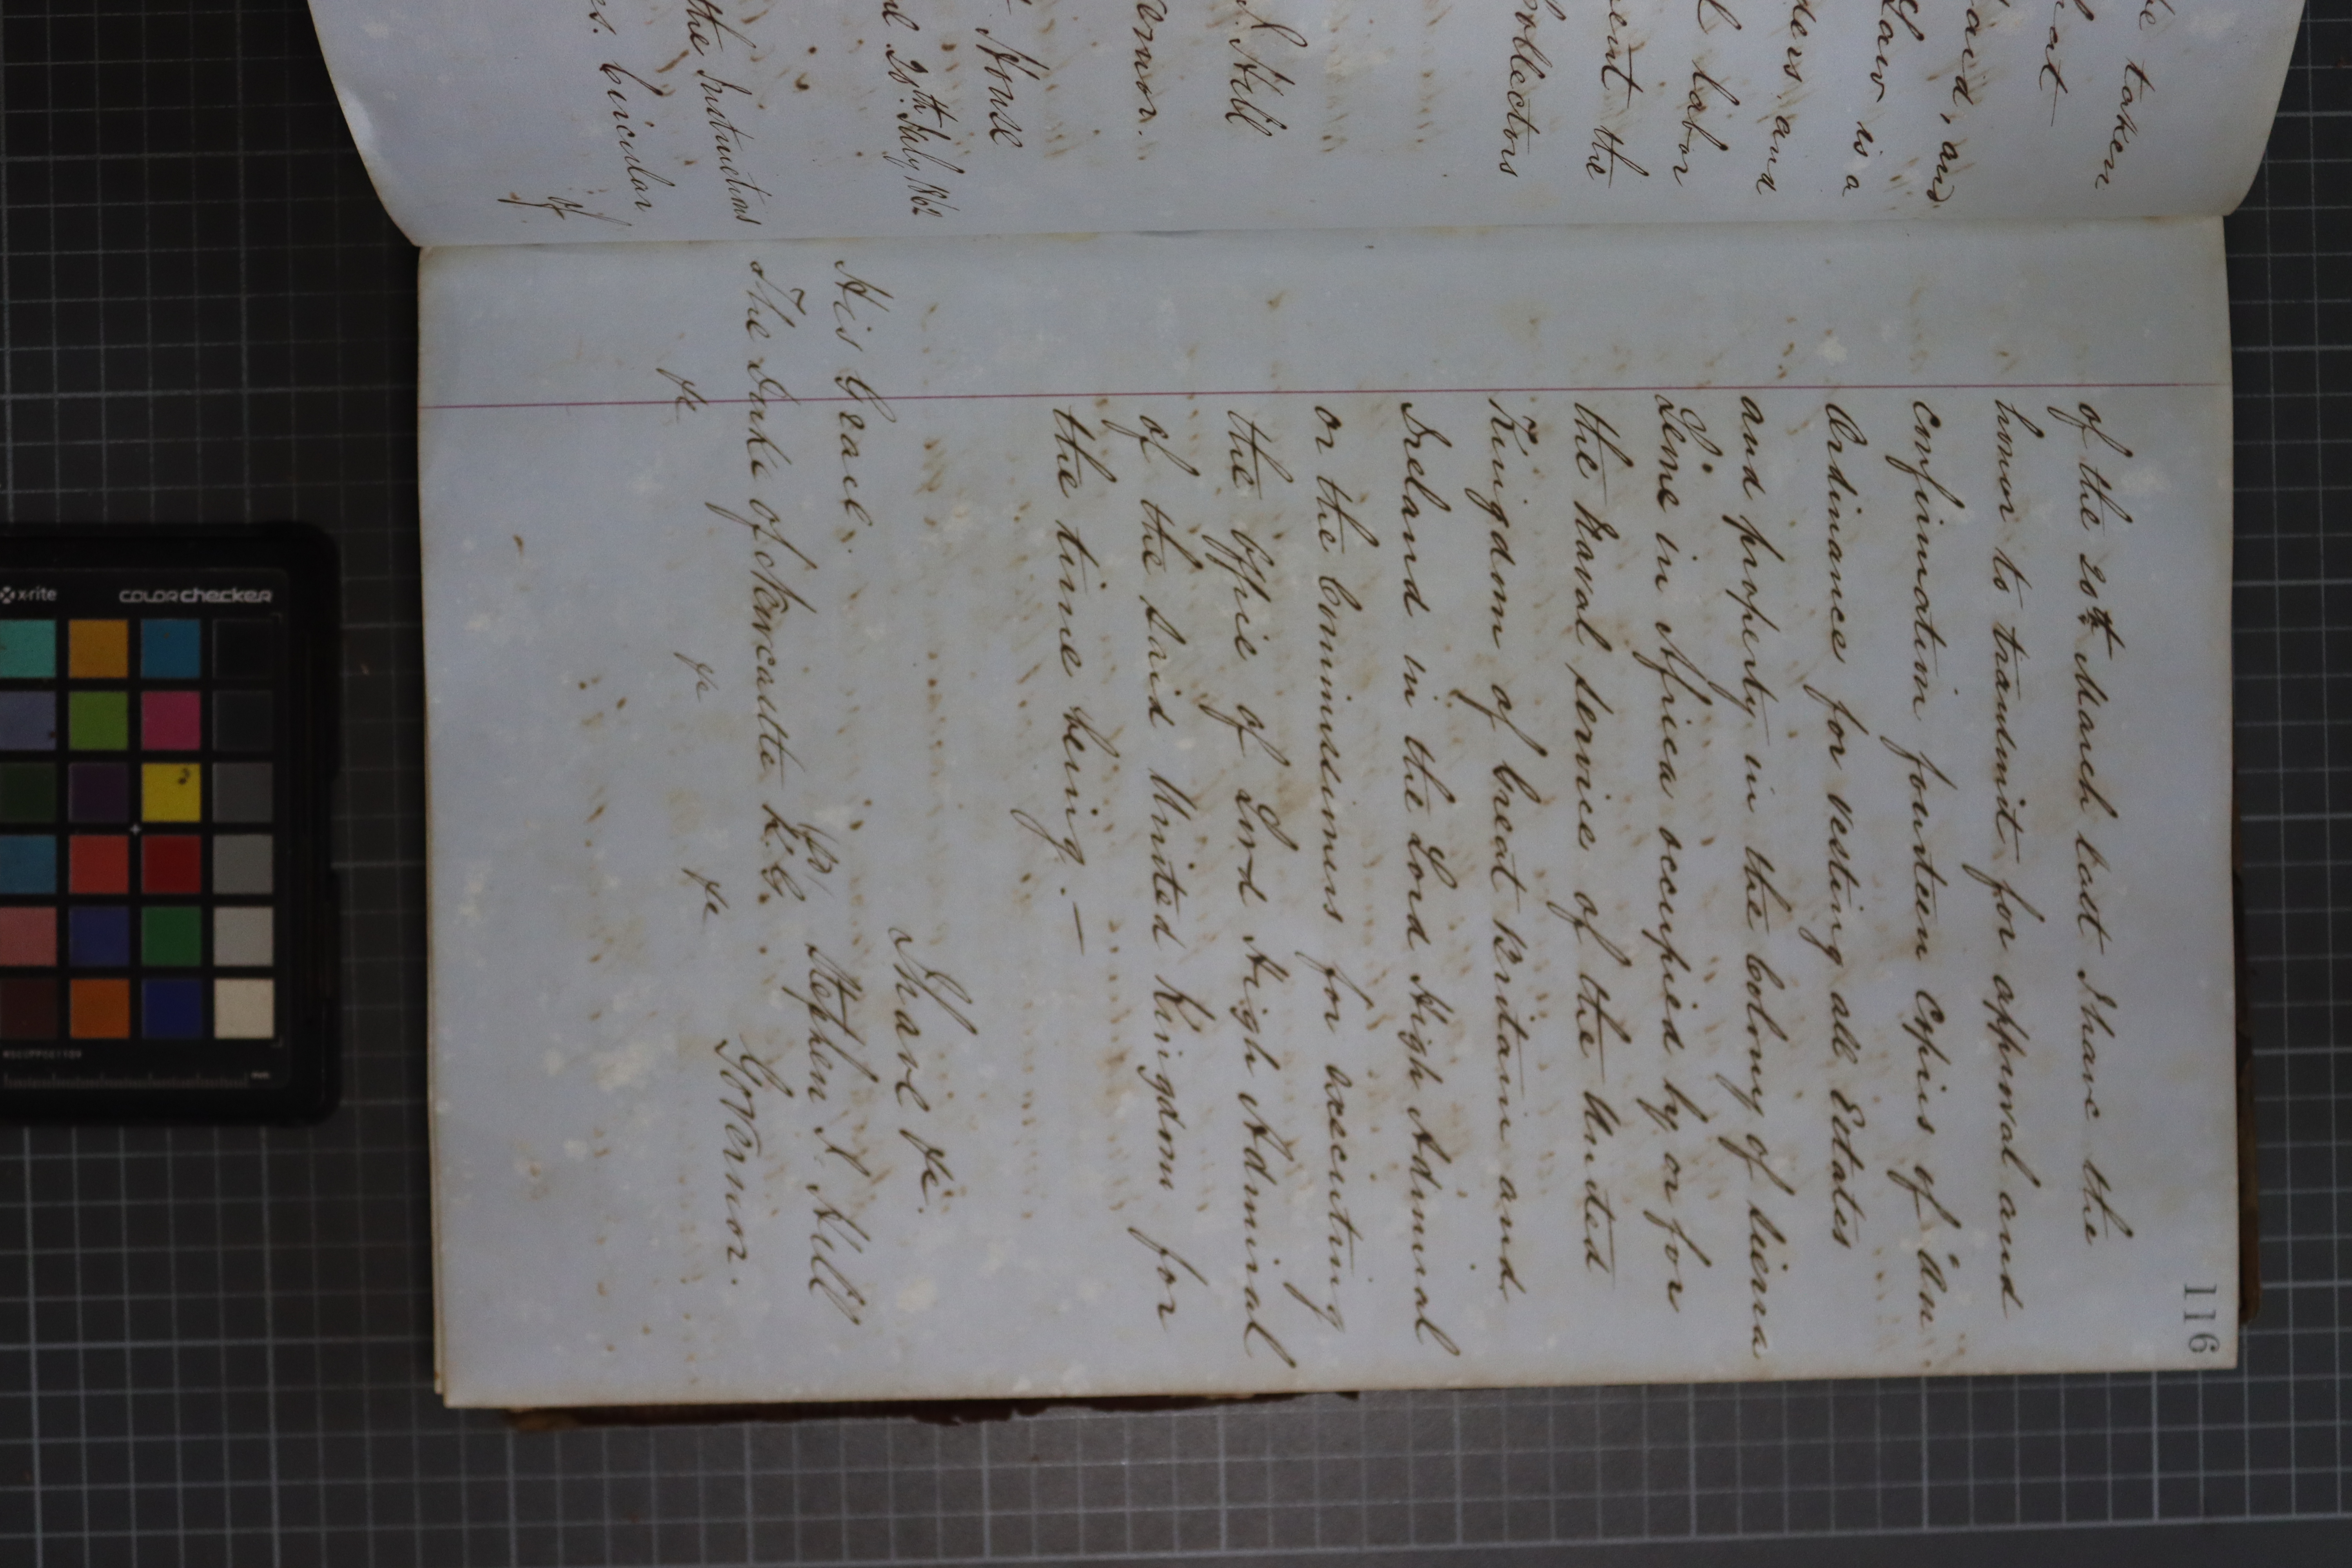 be taken
hat
said, and
Claw is a
ders and
l labor
sent the
Collectors
S. Hill
ernor.
House
28th July 1862
the Instructions
es. Circular
of
116
of the 20th March last I have the
honor to transmit for approval and
confirmation fourteen Copies of "An
Ordinance for vesting all Estates
and property in the Colony of Sierra
Leone in Africa occupied by or for
the Naval service of the United
Kingdom of Great Britain and
Ireland in the Lord High Admiral
or the Commissioners for executing
the Office of Lord High Admiral
of the said United Kingdom for
the time being.—
I have &c.
His Grace.
(s) Stephen J. Hill
The Duke of Newcastle K.G.
Governor.
&c &c &c
x-rite
colorchecker